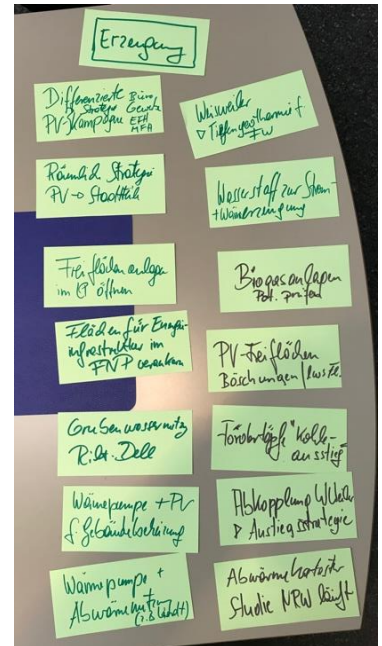 Erzeugung
Differenzierte Büro
Strategie Gewerbe
PV-Kampagne EFH
MFH
Räumliche Strategie
PV → Stadtteile
Freiflächenanlagen
im öffnen
Flächen für Energie-
infrastruktur im
FNP verankern
Grubenwassernutz
Richt. Dell
Wärmepumpe + PV
f. Gebäudeheizung
Wärmepumpe +
Abwärmenutzen
Weisweiler
Tiefengeothermie f.
FW
Wasserstoff zur Strom-
+ Wärmeerzeugung
Biogasanlagen
Pot. prüfen
PV-Freiflächen
Böschungen / Lws Fl.
Fördertöpfe "Kohle-
ausstieg"
Abkopplung
Ausstiegsstrategie
Abwärmekataster
Studie NRW läuft